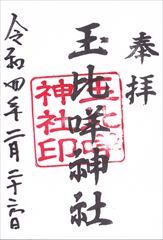 奉拝
玉比咩神社
玉比咩
神社印
令和四年二月二十六日